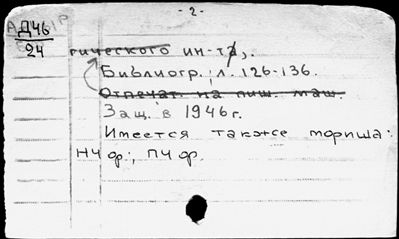 - 2 -
Д46
24
гического ин-та,.
Библиогр.: л. 126-136.
Отпечат. на пиш. маш.
Защ. в 1946 г.
Имеется также то
НЧ ф.; ПЧ ф.